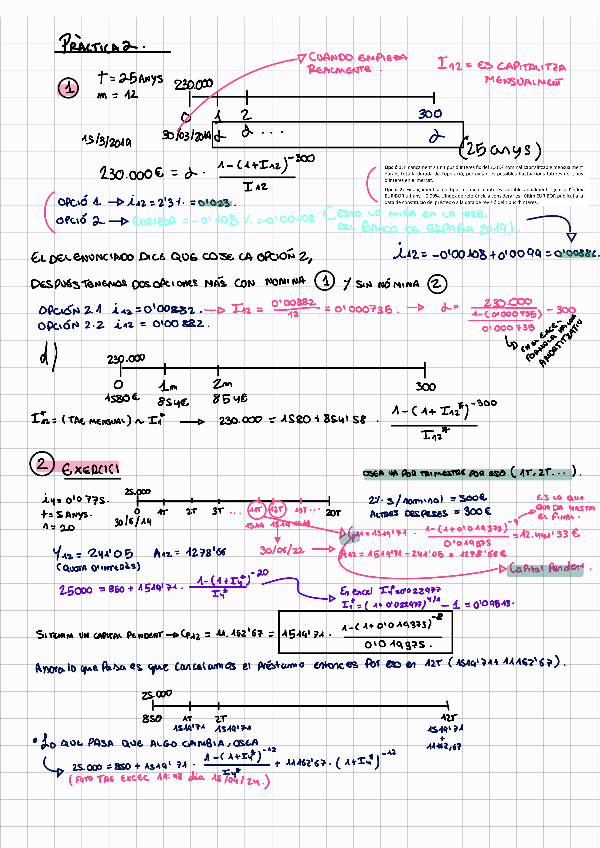 PRÀCTICA 2.
CUANDO EMPIEZA
REALMENTE.
I12 = ES CAPITALITZA
MENSUALMENT
1
t = 25 ANYS
m = 12
230.000
0 1 2 300
15/3/2019 30/03/2019 α α ... α
(25 anys)
230.000€ = α · 1-(1+I12)^-300 / I12
OPCIÓ 1 → i12 = 2'3% = 0'023.
OPCIÓ 2 → EURIBOR = -0'108% = -0'00108 (ESTO LO MIRA EN LA WEB
DEL BANCO DE ESPAÑA 2019).
i12 = -0'00108 + 0'0099 = 0'00882.
EL DEL ENUNCIADO DICE QUE COJE LA OPCIÓN 2,
DESPUÉS TENEMOS DOS OPCIONES MÁS CON NOMINA 1 Y SIN NÓMINA 2
OPCIÓN 2.1 i12 = 0'00882. → I12 = 0'00882 / 12 = 0'000735. → α = 230.000 / 1-(0'000735)^-300 / 0'000735
OPCIÓN 2.2 i12 = 0'00882.
EN EL EXCEL
d)
230.000
0 1m 2m 300
1580€ 854€ 854€
I12* = (TAE MENSUAL) ~ I1* → 230.000 = 1580 + 854'58 · 1-(1+I12*)^-300 / I12*
2 EXERCICI
OSEA VA POR TRIMESTRE POR ESO (1T, 2T...).
i4 = 0'0775.
t = 5 ANYS.
n = 20
25.000
0 1T 2T 3T ... 11T 12T 13T ... 20T
30/6/19 1519 1519 1519
2% s/nominal = 500€
ALTRES DESPESES = 300€
ES LO QUE
QUEDA HASTA
EL FINAL.
C11 = 1519'71 · 1-(1+0'019375)^-9 / 0'019375 = 12.441'33€
30/06/22 → A12 = 1519'71 - 241'05 = 1278'66€
Capital Pendent.
Y12 = 241'05 A12 = 1278'66
(QUOTA D'INTERÈS)
25000 = 850 + 1519'71 · 1-(1+I4*)^-20 / I4*
En excel I4* = 0'022977
I1* = (1+0'022977)^4/1 - 1 = 0'09513.
SI TENIM UN CAPITAL PENDENT → CP12 = 11.162'67 = 1519'71 · 1-(1+0'019375)^-8 / 0'019375.
Ahora lo que pasa es que cancelamos el préstamo entonces por eso en 12T (1519'71 + 11162'67).
25.000
850 1T 2T 12T
1519'71 1519'71 1519'71
+
11162,67
• LO QUE PASA QUE ALGO CAMBIA, OSEA
25.000 = 850 + 1519'71 · 1-(1+I4*)^-12 / I4* + 11162'67 · (1+I4*)^-12
(FOTO TAE EXCEL 11:48 dia 15/04/24.)